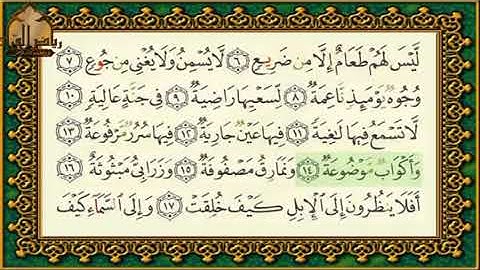 لَّيْسَ لَهُمْ طَعَامٌ إِلَّا مِن ضَرِيعٍ ٦ لَّا يُسْمِنُ وَلَا يُغْنِي مِن جُوعٍ ٧
وُجُوهٌ يَوْمَئِذٍ نَّاعِمَةٌ ٨ لِّسَعْيِهَا رَاضِيَةٌ ٩ فِي جَنَّةٍ عَالِيَةٍ ١٠
لَّا تَسْمَعُ فِيهَا لَاغِيَةً ١١ فِيهَا عَيْنٌ جَارِيَةٌ ١٢ فِيهَا سُرُرٌ مَّرْفُوعَةٌ ١٣
وَأَكْوَابٌ مَّوْضُوعَةٌ ١٤ وَنَمَارِقُ مَصْفُوفَةٌ ١٥ وَزَرَابِيُّ مَبْثُوثَةٌ ١٦
أَفَلَا يَنظُرُونَ إِلَى الْإِبِلِ كَيْفَ خُلِقَتْ ١٧ وَإِلَى السَّمَاءِ كَيْفَ